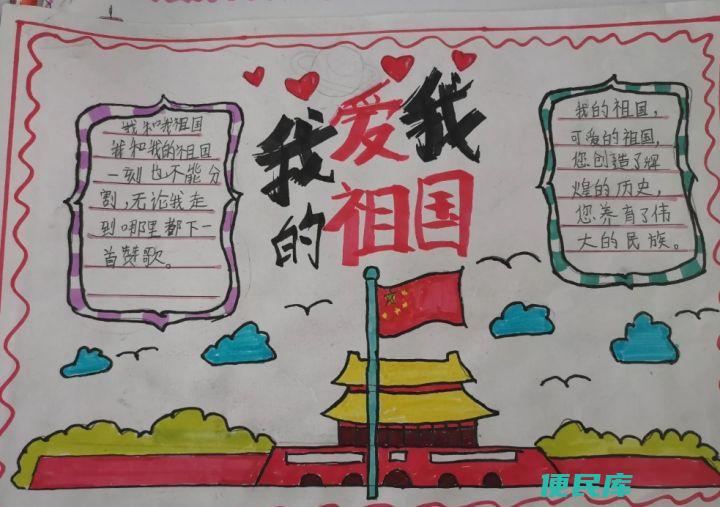 我爱我
的祖国
我和我祖国
我和我的祖国
一刻也不能分
割,无论我走
到哪里都下一
首赞歌。
我的祖国,
可爱的祖国,
您创造了辉
煌的历史,
您养育了伟
大的民族。
便民库